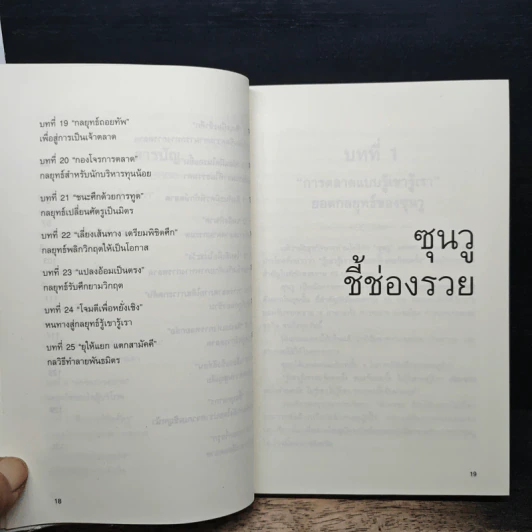 บทที่ 19 "กลยุทธ์ถอยทัพ"
เพื่อสู่การเป็นเจ้าตลาด
บทที่ 20 "กองโจรการตลาด"
กลยุทธ์สำหรับนักบริหารทุนน้อย
บทที่ 21 "ชนะศึกด้วยการทูต"
กลยุทธ์เปลี่ยนศัตรูเป็นมิตร
บทที่ 22 "เลี่ยงเส้นทาง เตรียมพิชิตศึก"
กลยุทธ์พลิกวิกฤตให้เป็นโอกาส
บทที่ 23 "แปลงอ้อมเป็นตรง"
กลยุทธ์รับศึกยามวิกฤต
บทที่ 24 "โจมตีเพื่อหยั่งเชิง"
หนทางสู่กลยุทธ์รู้เขารู้เรา
บทที่ 25 "ยุให้แยก แตกสามัคคี"
กลวิธีทำลายพันธมิตร
18
ซุนวู
ชี้ช่องรวย
19